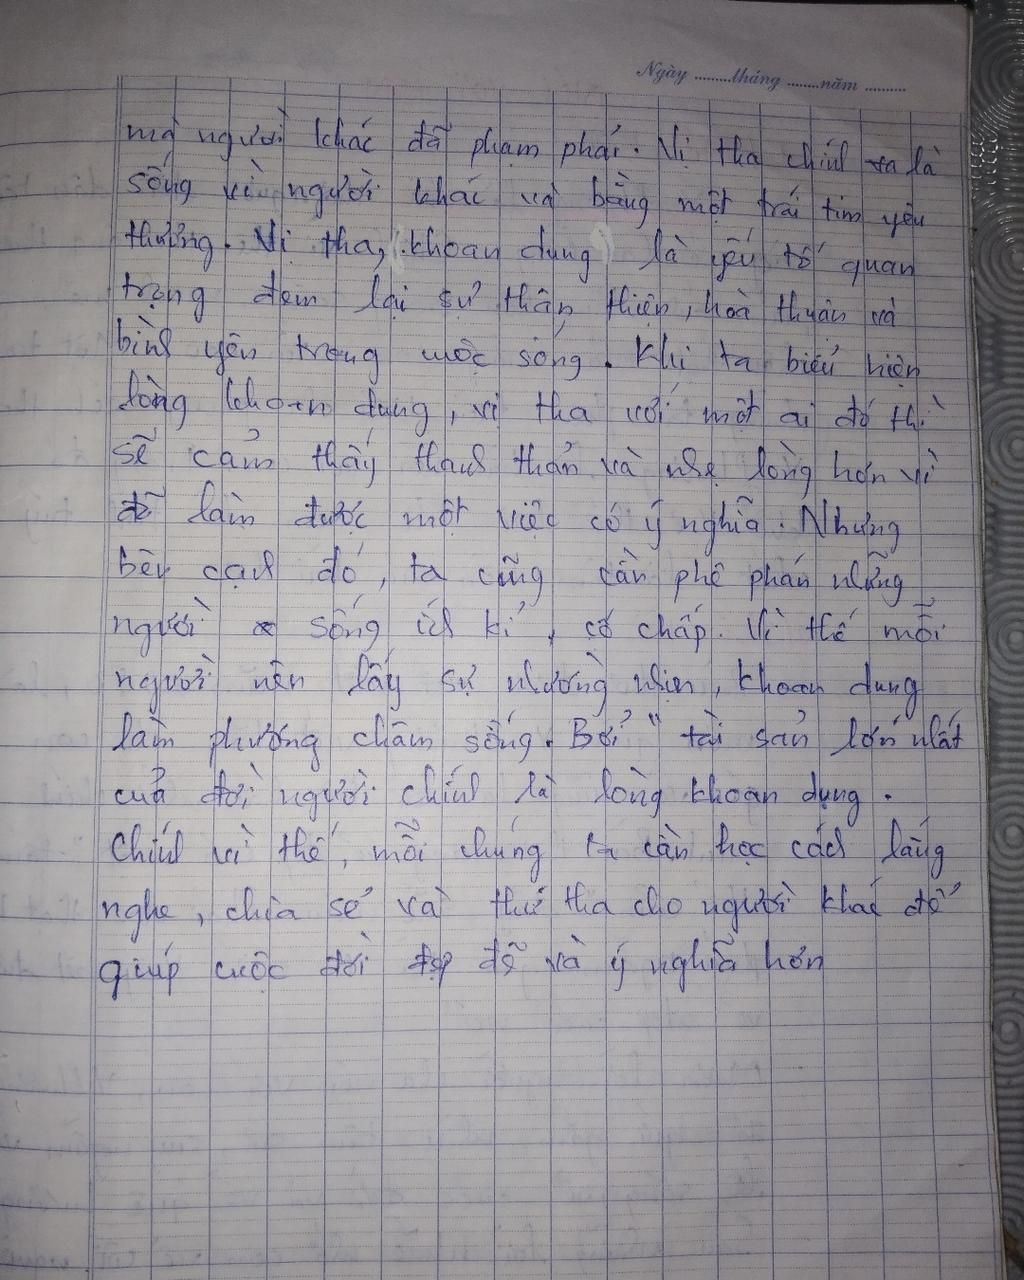 Ngày ........tháng .......năm .........
mà người khác đã phạm phải. Vị tha chính ta là
sống vì người khác và bằng một trái tim yêu
thương. Vị tha, (khoan dung) là yếu tố quan
trọng đem lại sự thân thiện, hoà thuận và
bình yên trong cuộc sống. Khi ta biểu hiện
lòng khoan dung, vị tha với một ai đó thì
sẽ cảm thấy thanh thản và nhẹ lòng hơn vì
đã làm được một việc có ý nghĩa. Nhưng
bên cạnh đó, ta cũng cần phê phán những
người sống ích kỉ, cố chấp. Vì thế mỗi
người nên lấy sự nhường nhịn, khoan dung
làm phương châm sống. Bởi " tài sản lớn nhất
của đời người chính là lòng khoan dung.
Chính vì thế, mỗi chúng ta cần học cách lắng
nghe, chia sẻ và thứ tha cho người khác để
giúp cuộc đời đẹp đẽ và ý nghĩa hơn